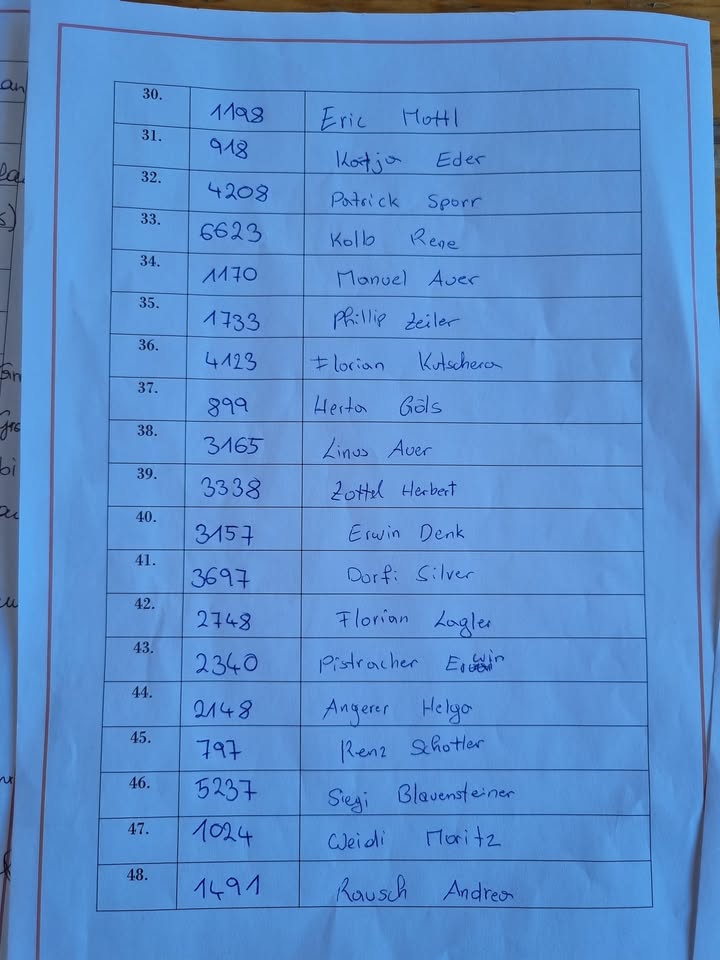 30. 1198 Eric Mottl
31. 918 Katja Eder
32. 4208 Patrick Sporr
33. 6623 Kolb Rene
34. 1170 Manuel Auer
35. 1733 Phillip Zeiler
36. 4123 Florian Kutschera
37. 899 Herta Göls
38. 3165 Linus Auer
39. 3338 Zottel Herbert
40. 3157 Erwin Denk
41. 3697 Dorfi Silver
42. 2748 Florian Lagler
43. 2340 Pistracher Erwin
44. 2148 Angerer Helga
45. 797 Renz Schotler
46. 5237 Siegi Blauensteiner
47. 1024 Weidi Moritz
48. 1491 Rausch Andrea